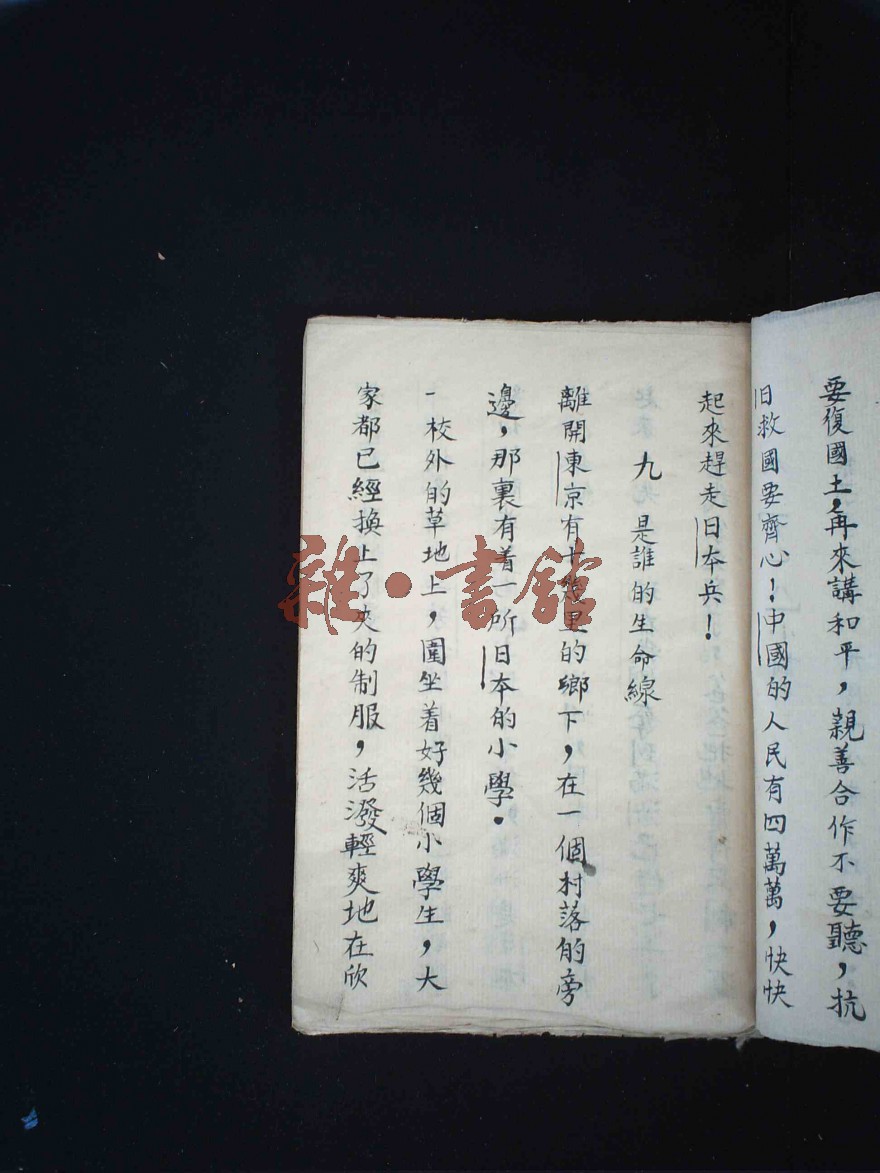 要復國土，再來講和平，親善合作不要聽，抗
日救國要齊心！中國的人民有四萬萬，快快
起來趕走日本兵！
九 是誰的生命線
離開東京有十幾里的鄉下，在一個村落的旁
邊，那裏有着一所日本的小學。
校外的草地上，圍坐着好幾個小學生，大
家都已經換上了夾的制服，活潑輕爽地在欣
雜·書館